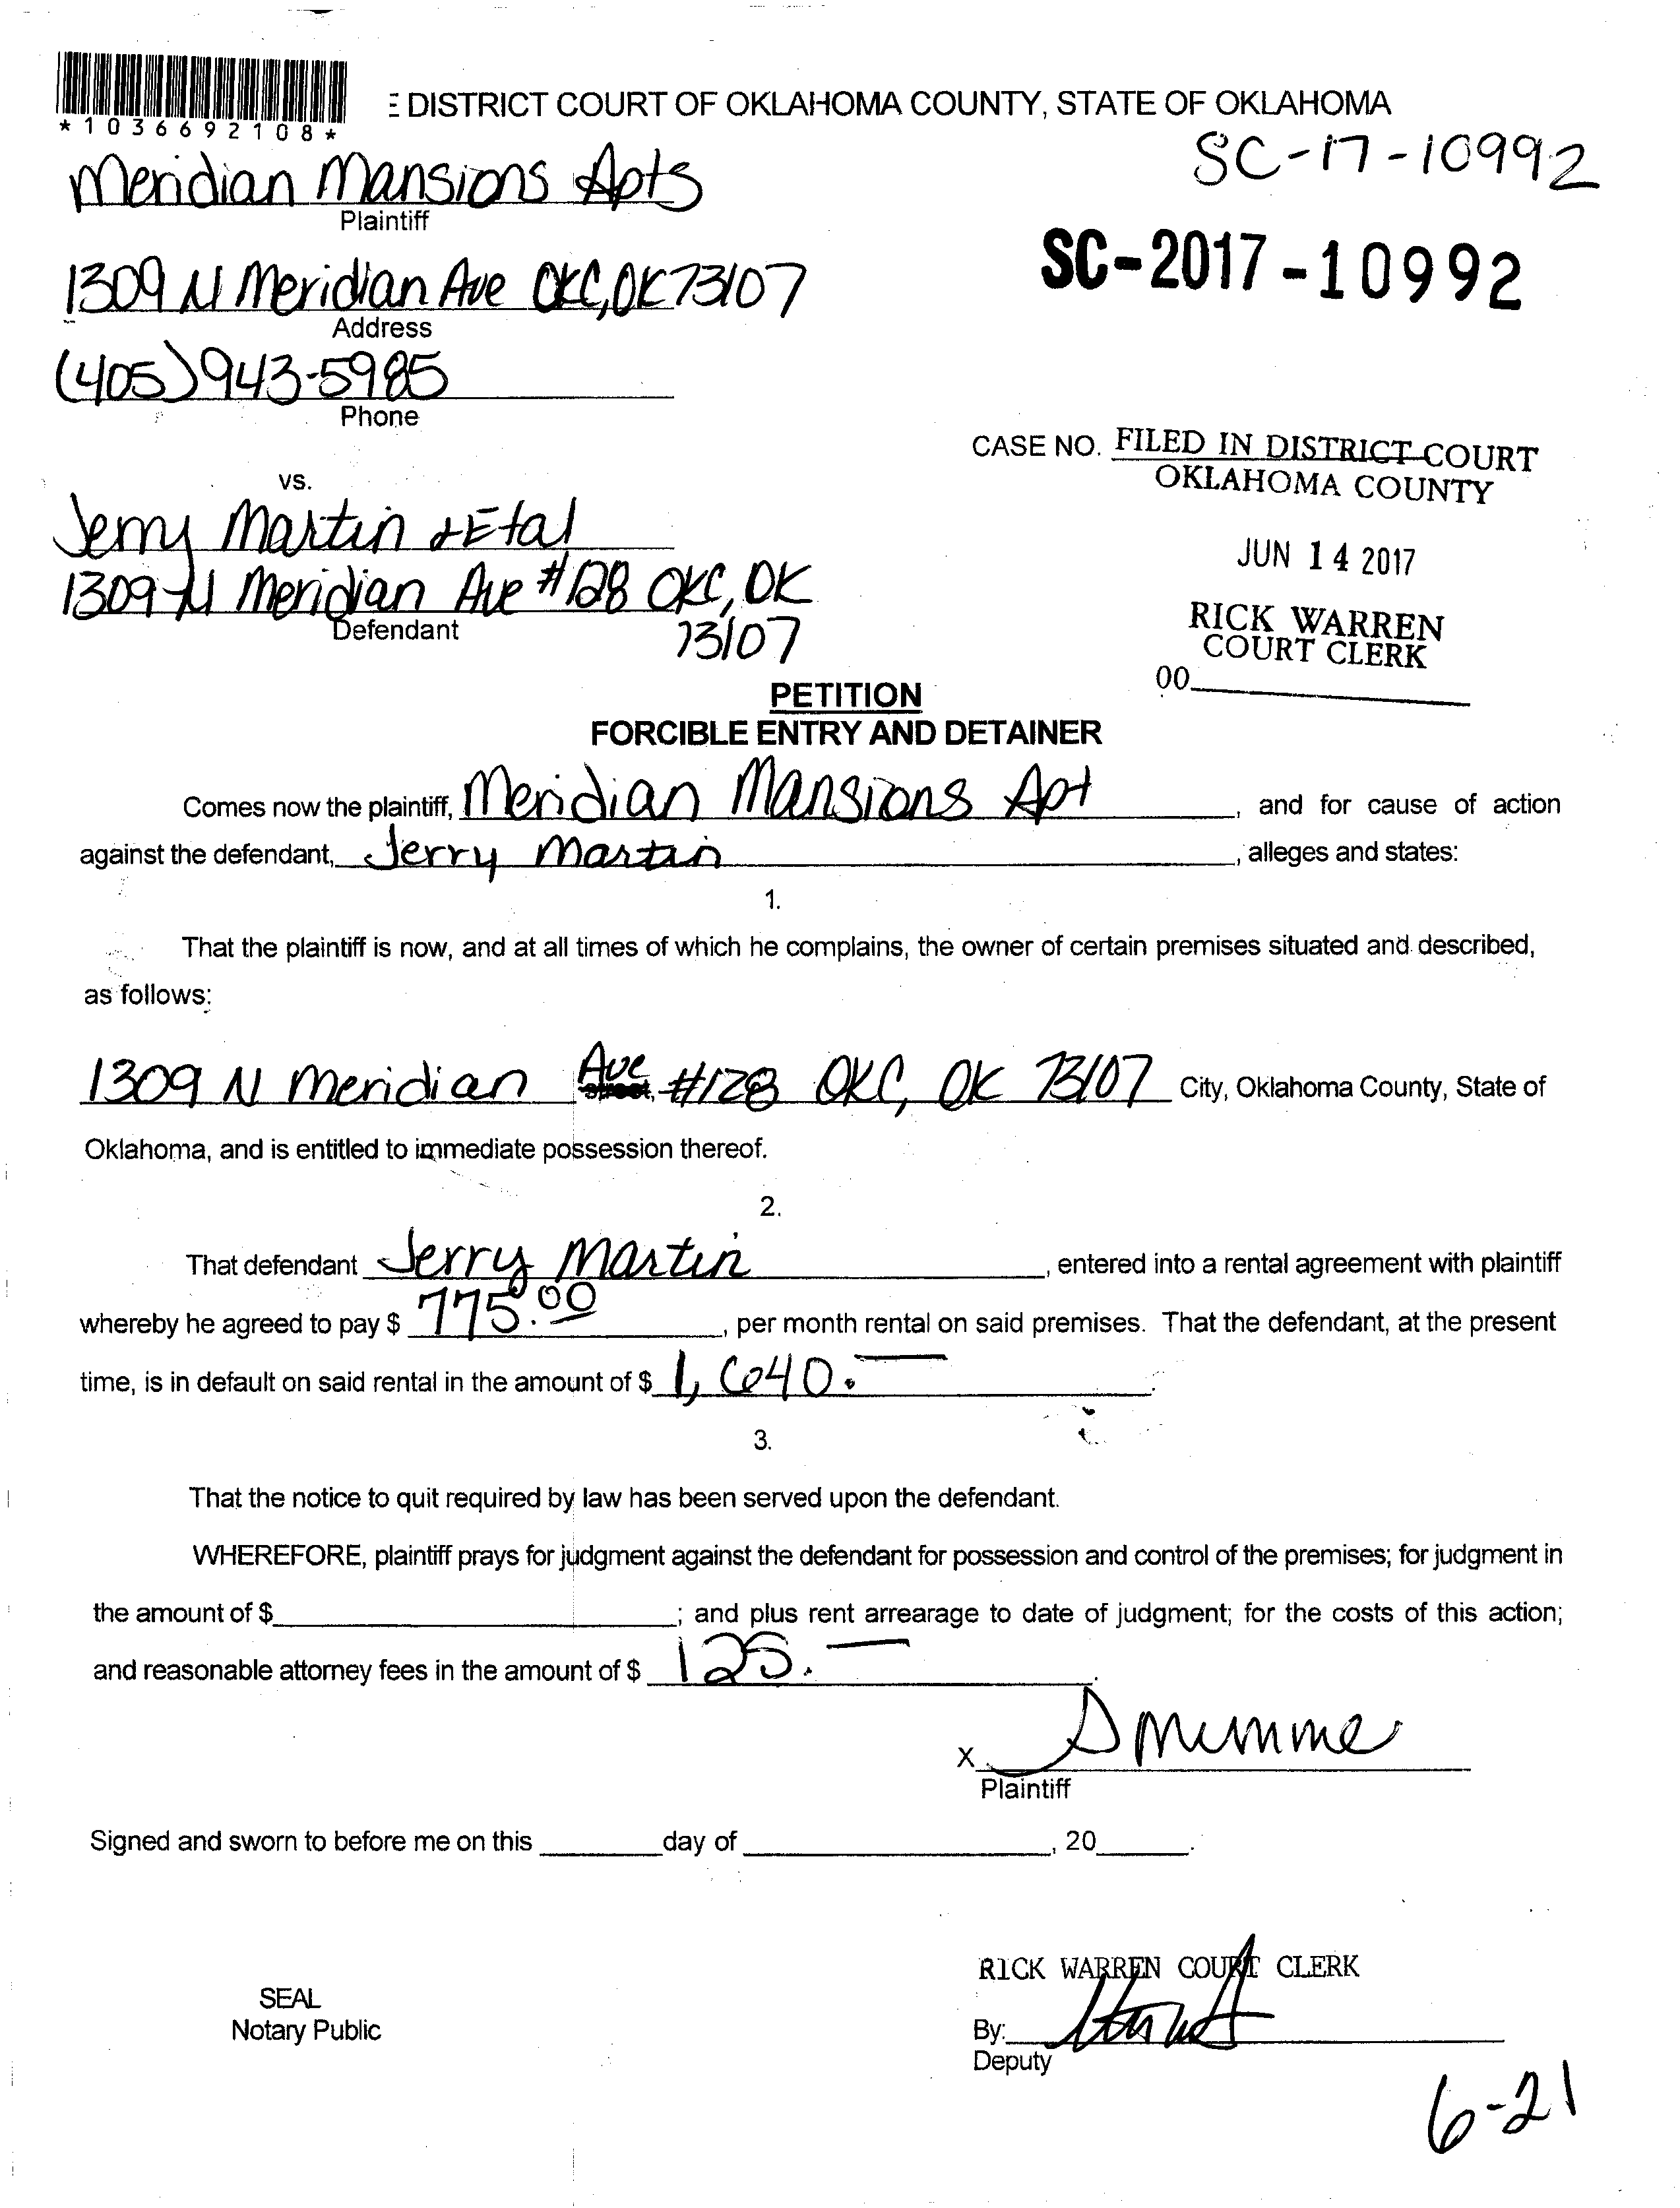 *1036692108*
E DISTRICT COURT OF OKLAHOMA COUNTY, STATE OF OKLAHOMA
SC-17-10992
Meridian Mansions Apts
Plaintiff
SC-2017-10992
1309 N Meridian Ave OKC, OK 73107
Address
(405) 943-5985
Phone
CASE NO. FILED IN DISTRICT COURT
OKLAHOMA COUNTY
vs.
Jerry Martin & Etal
JUN 14 2017
1309 N Meridian Ave #128 OKC, OK
73107
Defendant
RICK WARREN
COURT CLERK
00
PETITION
FORCIBLE ENTRY AND DETAINER
Comes now the plaintiff, Meridian Mansions Apt, and for cause of action
against the defendant, Jerry Martin, alleges and states:
1.
That the plaintiff is now, and at all times of which he complains, the owner of certain premises situated and described,
as follows:
1309 N Meridian Ave #128 OKC, OK 73107 City, Oklahoma County, State of
Oklahoma, and is entitled to immediate possession thereof.
2.
That defendant Jerry Martin, entered into a rental agreement with plaintiff
whereby he agreed to pay $ 775.00, per month rental on said premises. That the defendant, at the present
time, is in default on said rental in the amount of $ 1,640.—.
3.
That the notice to quit required by law has been served upon the defendant.
WHEREFORE, plaintiff prays for judgment against the defendant for possession and control of the premises; for judgment in
the amount of $ ; and plus rent arrearage to date of judgment; for the costs of this action;
and reasonable attorney fees in the amount of $ 125.—.
X
Plaintiff
Signed and sworn to before me on this day of , 20 .
RICK WARREN COURT CLERK
SEAL
Notary Public
By:
Deputy
6-21